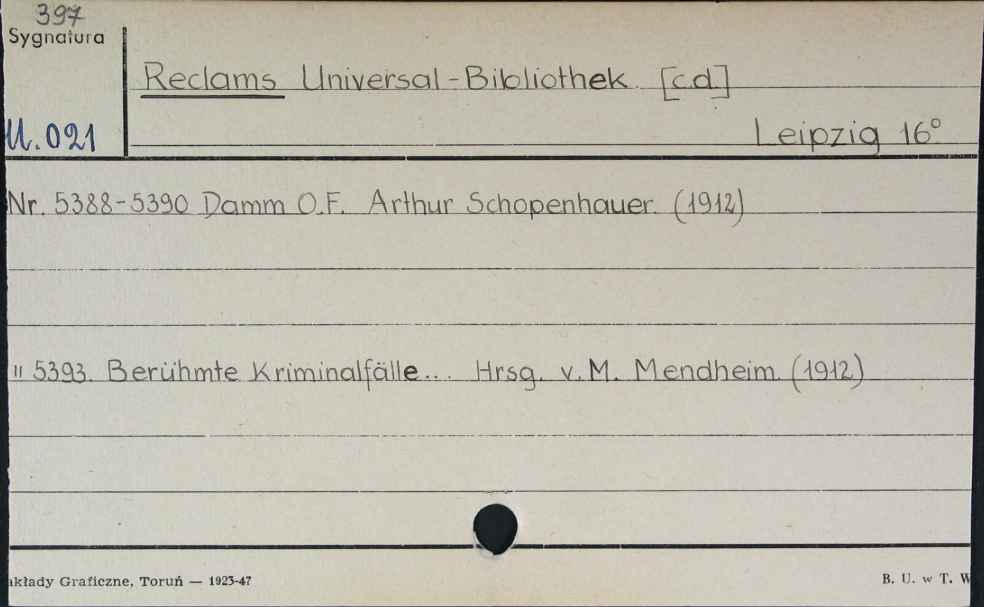 397
Sygnatura
U. 021
Reclams Universal-Bibliothek [c.d.]
Leipzig 16°
Nr. 5388-5390 Damm O.F. Arthur Schopenhauer. (1912)
" 5393. Berühmte Kriminalfälle... Hrsg. v. M. Mendheim. (1912)
akłady Graficzne, Toruń — 1923-47
B. U. w T. W